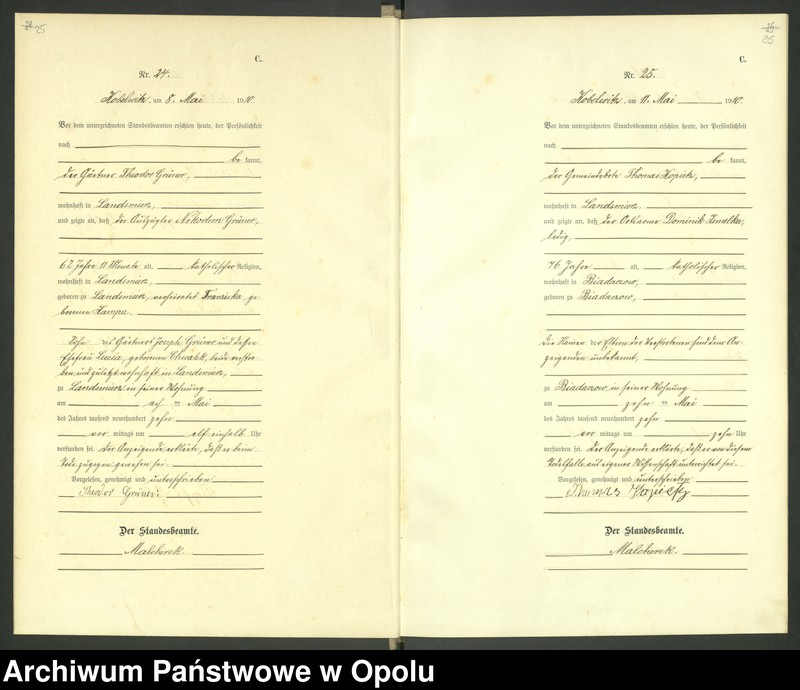 25
C.
Nr. 24.
Kobelwitz, am 8. Mai 1910.
Vor dem unterzeichneten Standesbeamten erschien heute, der Persönlichkeit
nach
be kannt,
der Gärtner Theodor Grüner,
wohnhaft in Landsmierz,
und zeigte an, daß der Auszügler Nikodem Grüner,
62 Jahre 11 Monate alt, katholischer Religion,
wohnhaft in Landsmierz,
geboren zu Landsmierz, verheiratet Franziska, ge-
borenen Kampa,
Sohn des Gärtners Joseph Grüner und dessen
Ehefrau Luzia, geborenen Chwalek, beide verstor-
ben und zuletzt wohnhaft in Landsmierz,
zu Landsmierz in seiner Wohnung
am acht en Mai
des Jahres tausend neunhundert zehn
vor mittags um elf einhalb Uhr
verstorben sei. Der Anzeigende erklärte, daß er beim
Tode zugegen gewesen sei.
Vorgelesen, genehmigt und unterschrieben
Theodor Grüner.
Der Standesbeamte.
Malcherek.
25
C.
Nr. 25.
Kobelwitz, am 11. Mai 1910.
Vor dem unterzeichneten Standesbeamten erschien heute, der Persönlichkeit
nach
be kannt,
der Gemeindebote Thomas
wohnhaft in Landsmierz,
und zeigte an, daß der Ortsarme Dominik
ledig,
76 Jahre alt, katholischer Religion,
wohnhaft in Biadacow,
geboren zu Biadacow,
Die Namen der Eltern des Verstorbenen sind dem An-
zeigenden unbekannt,
zu Biadacow in seiner Wohnung
am zehn en Mai
des Jahres tausend neunhundert zehn
vor mittags um zehn Uhr
verstorben sei. Der Anzeigende erklärte, daß er von diesem
Todesfalle aus eigener Wissenschaft unterrichtet sei.
Vorgelesen, genehmigt und unterschrieben
Der Standesbeamte.
Malcherek.
Archiwum Państwowe w Opolu